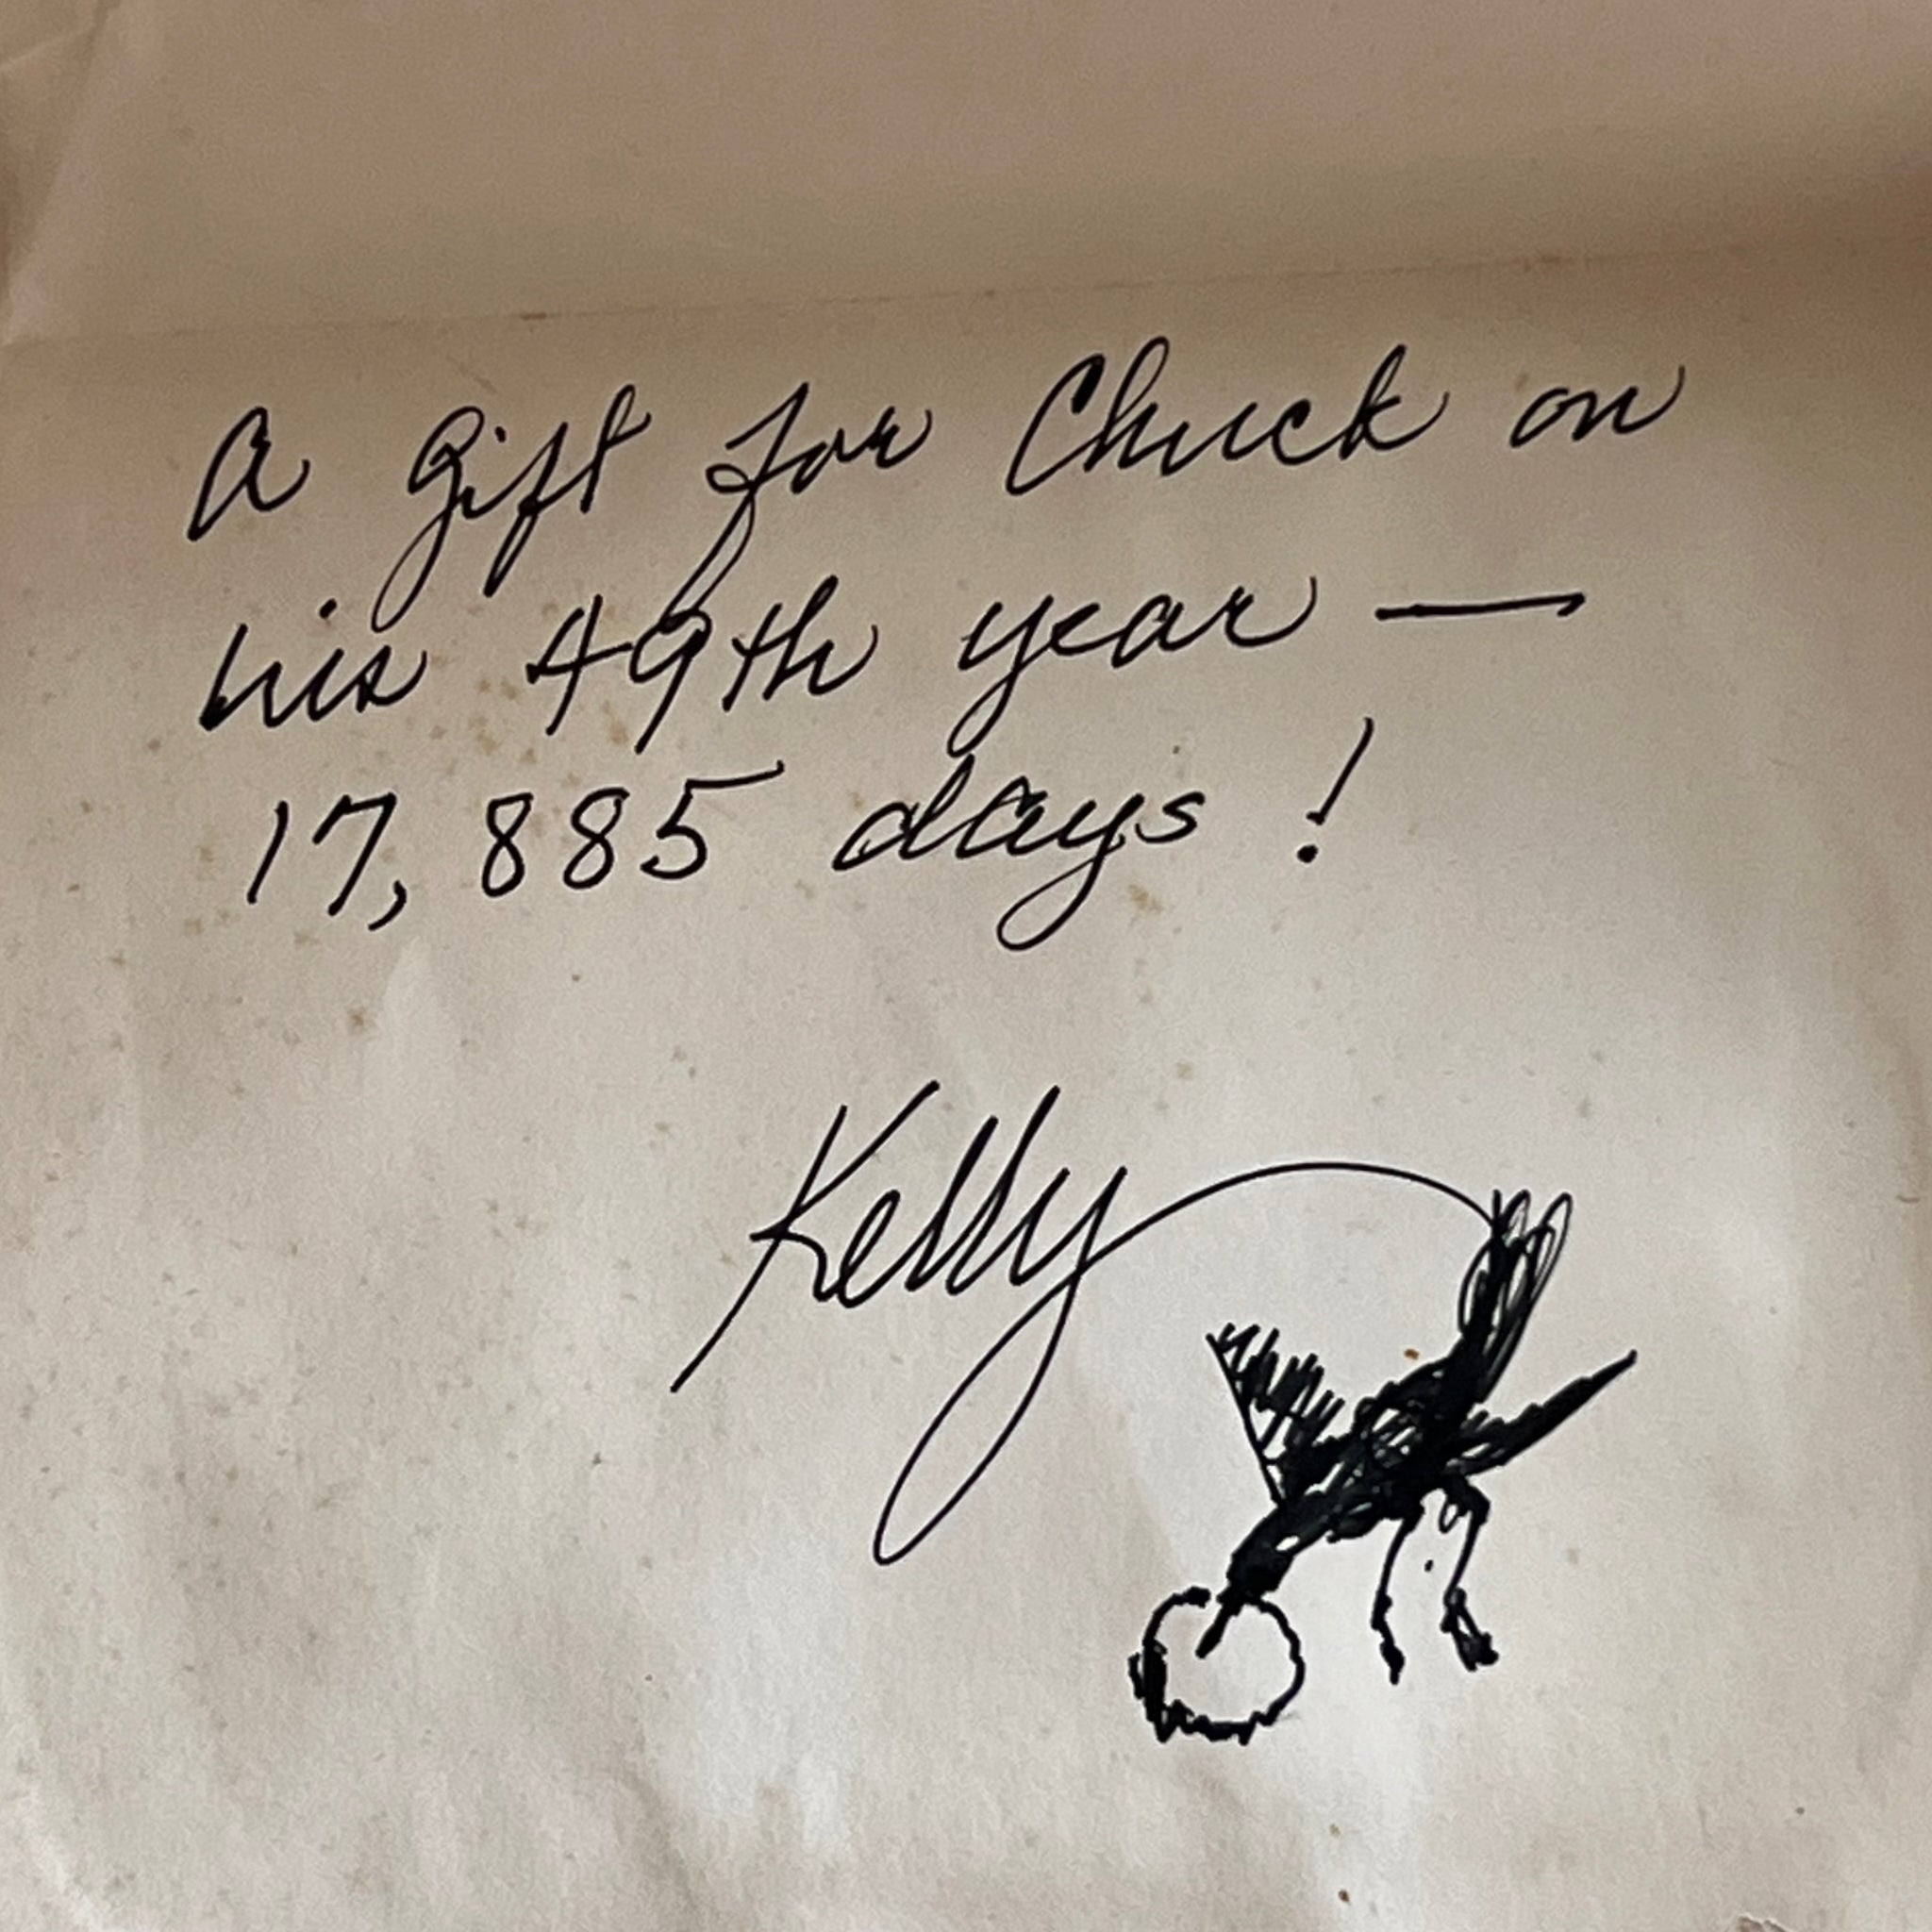 A gift for Chuck on
his 49th year —
17,885 days!
Kelly